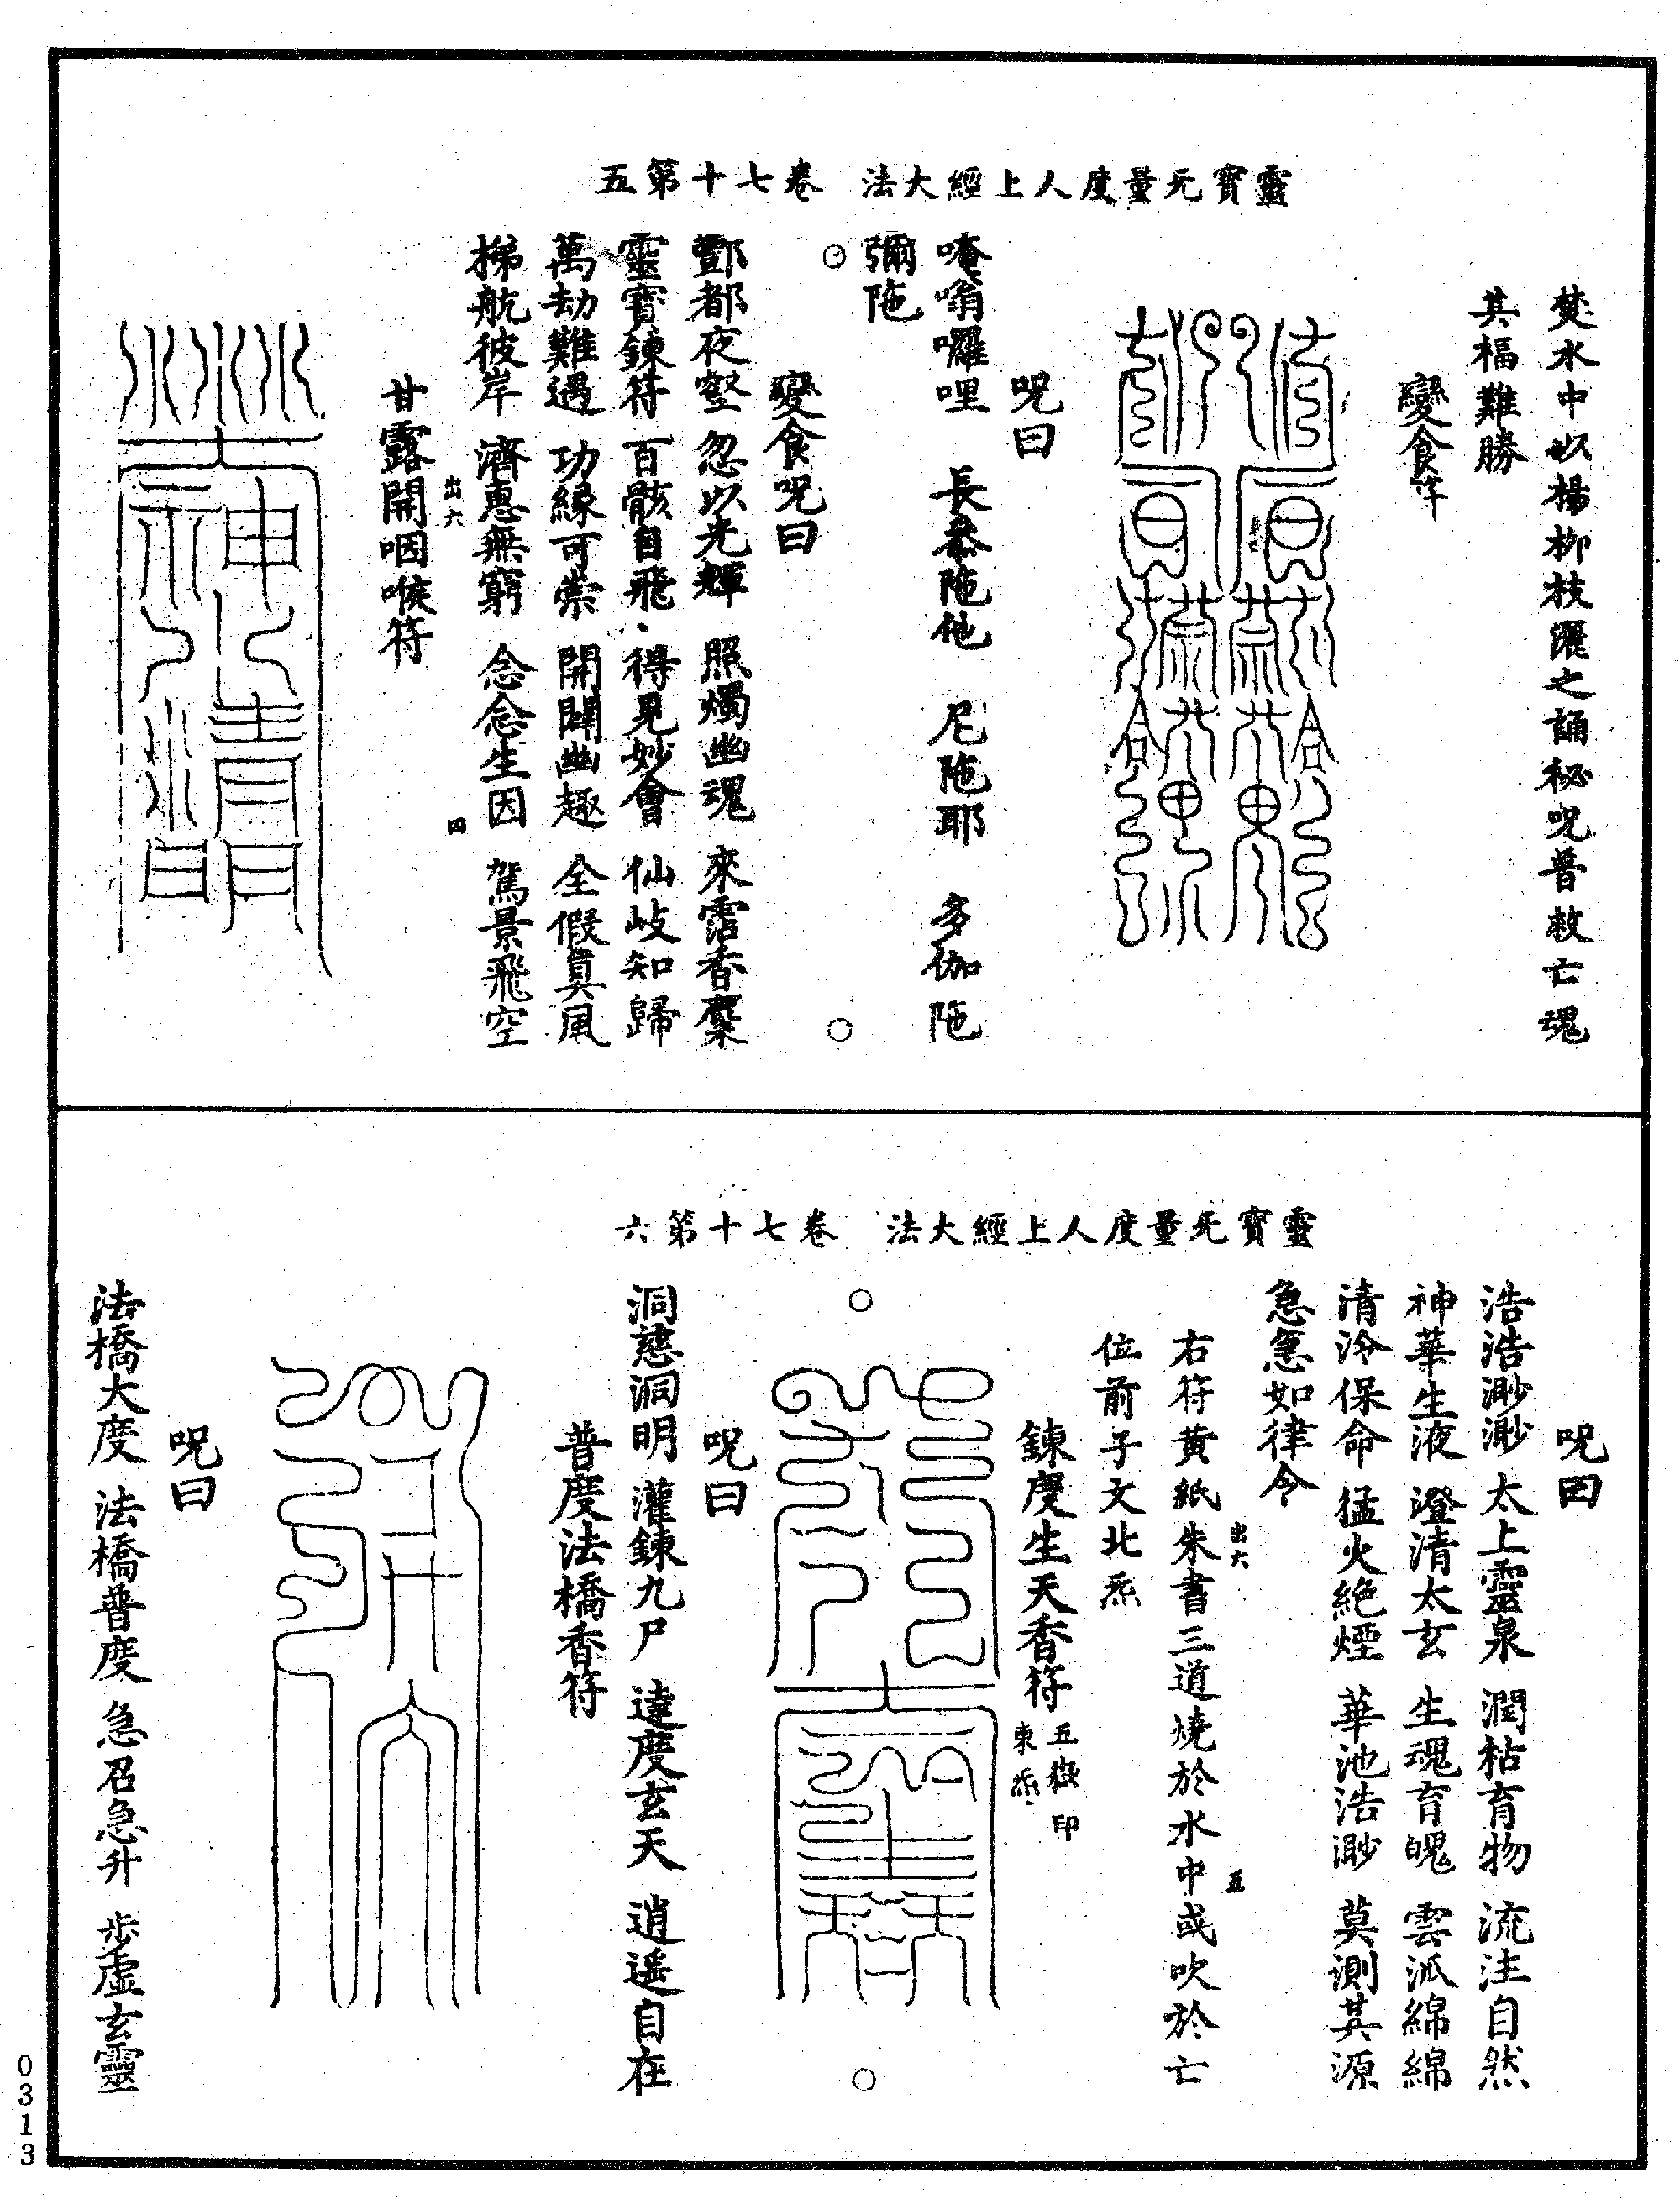 靈寶无量度人上經大法　卷七十第五
焚水中以楊柳枝灑之誦秘呪普救亡魂
其福難勝
變食符
呪曰
唵嗡囉哩　長桼陁他　尼陁耶　多伽陁
彌陁
變食呪曰
酆都夜壑　忽以光輝　照燭幽魂　來霑香糜
靈寶鍊符　百骸自飛　得見妙會　仙岐知歸
萬劫難遇　功緣可崇　開闢幽趣　全假真風
梯航彼岸　濟惠無窮　念念生因　駕景飛空
出六　四
甘露開咽喉符
靈寶无量度人上經大法　卷七十第六
呪曰
浩浩渺渺　太上靈泉　潤枯育物　流注自然
神華生液　澄清太玄　生魂育魄　雲派綿綿
清泠保命　猛火絶煙　華池浩渺　莫測其源
急急如律令
出六　五
右符黃紙朱書三道燒於水中或吹於亡
位前子文北炁
鍊度生天香符　五嶽印
東炁
呪曰
洞慈洞明　灌鍊九尸　達度玄天　逍遥自在
普度法橋香符
呪曰
法橋大度　法橋普度　急召急升　步虛玄靈
0313